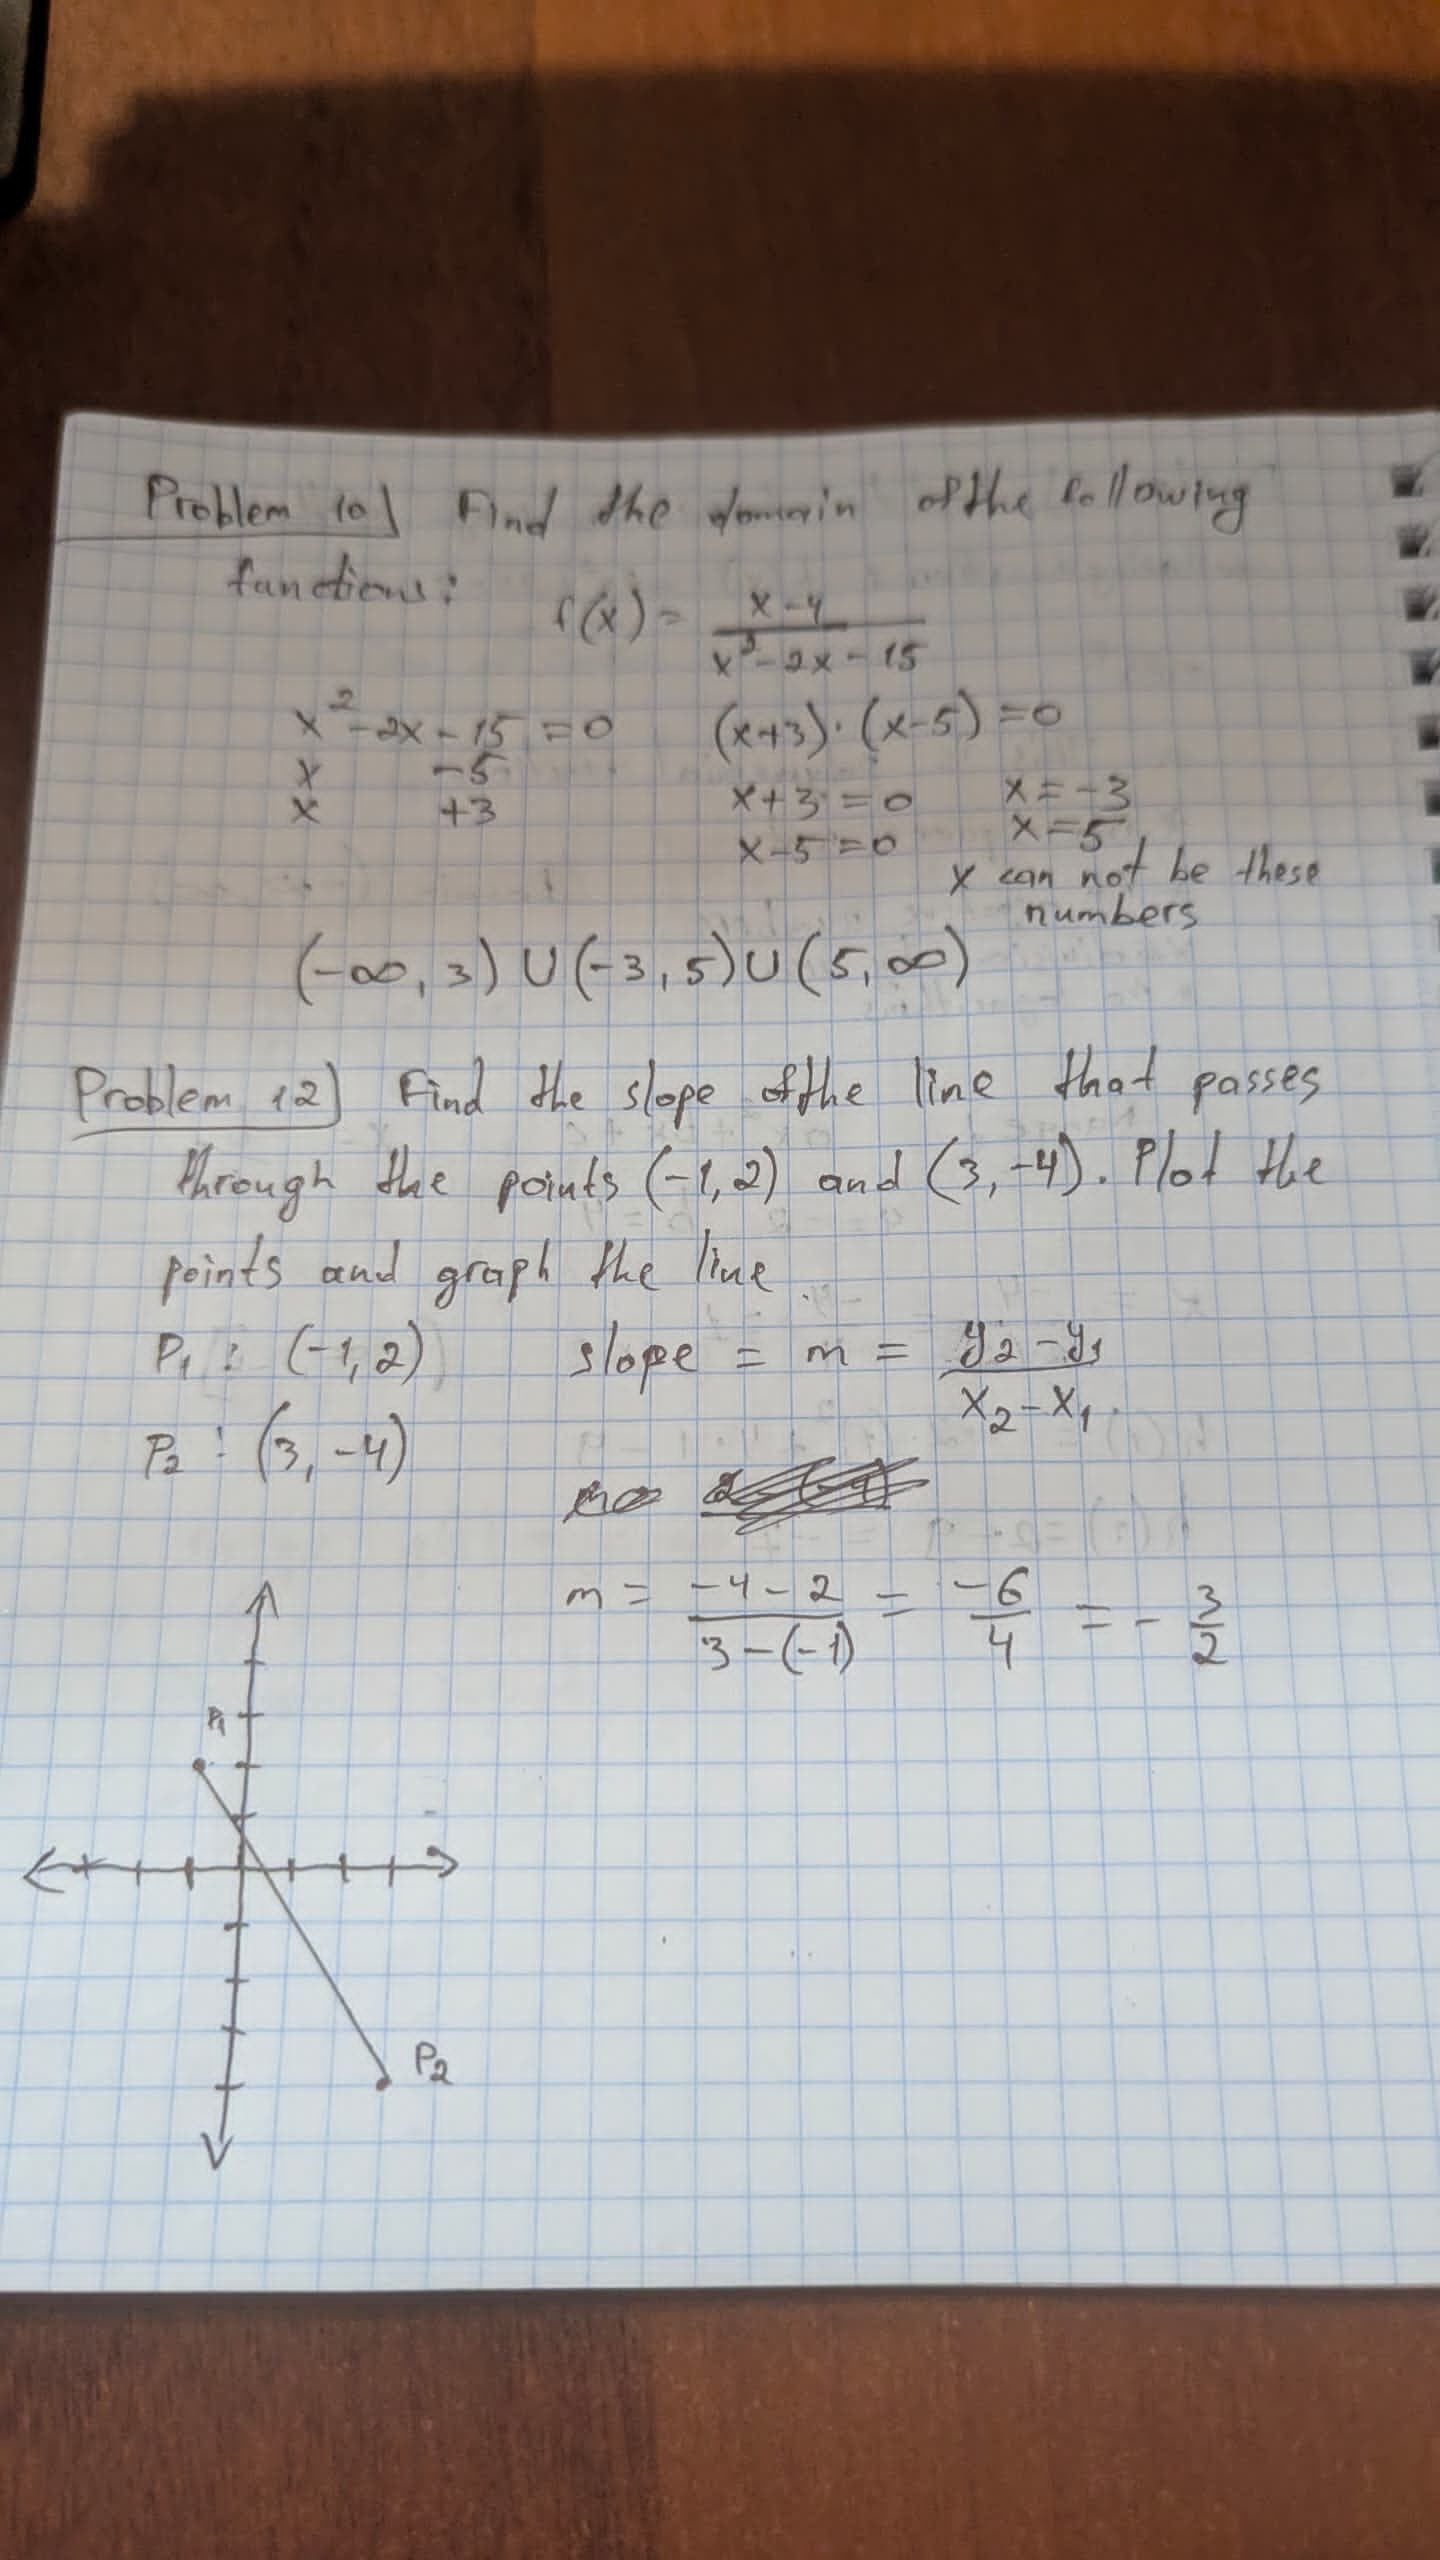 Problem 10) Find the domain of the following
functions:
f(x) = (x-4)/(x²-2x-15)
x²-2x-15 = 0    (x+3)·(x-5) = 0
x    -5
x    +3    x+3 = 0    x = -3
x-5 = 0    x = 5
x can not be these
numbers
(-∞, 3) U (-3, 5) U (5, ∞)
Problem 12) Find the slope of the line that passes
through the points (-1, 2) and (3, -4). Plot the
points and graph the line.
P₁ : (-1, 2)    slope = m = (y₂-y₁)/(x₂-x₁)
P₂ : (3, -4)
m = (-4-2)/(3-(-1)) = -6/4 = - 3/2
P₁
P₂